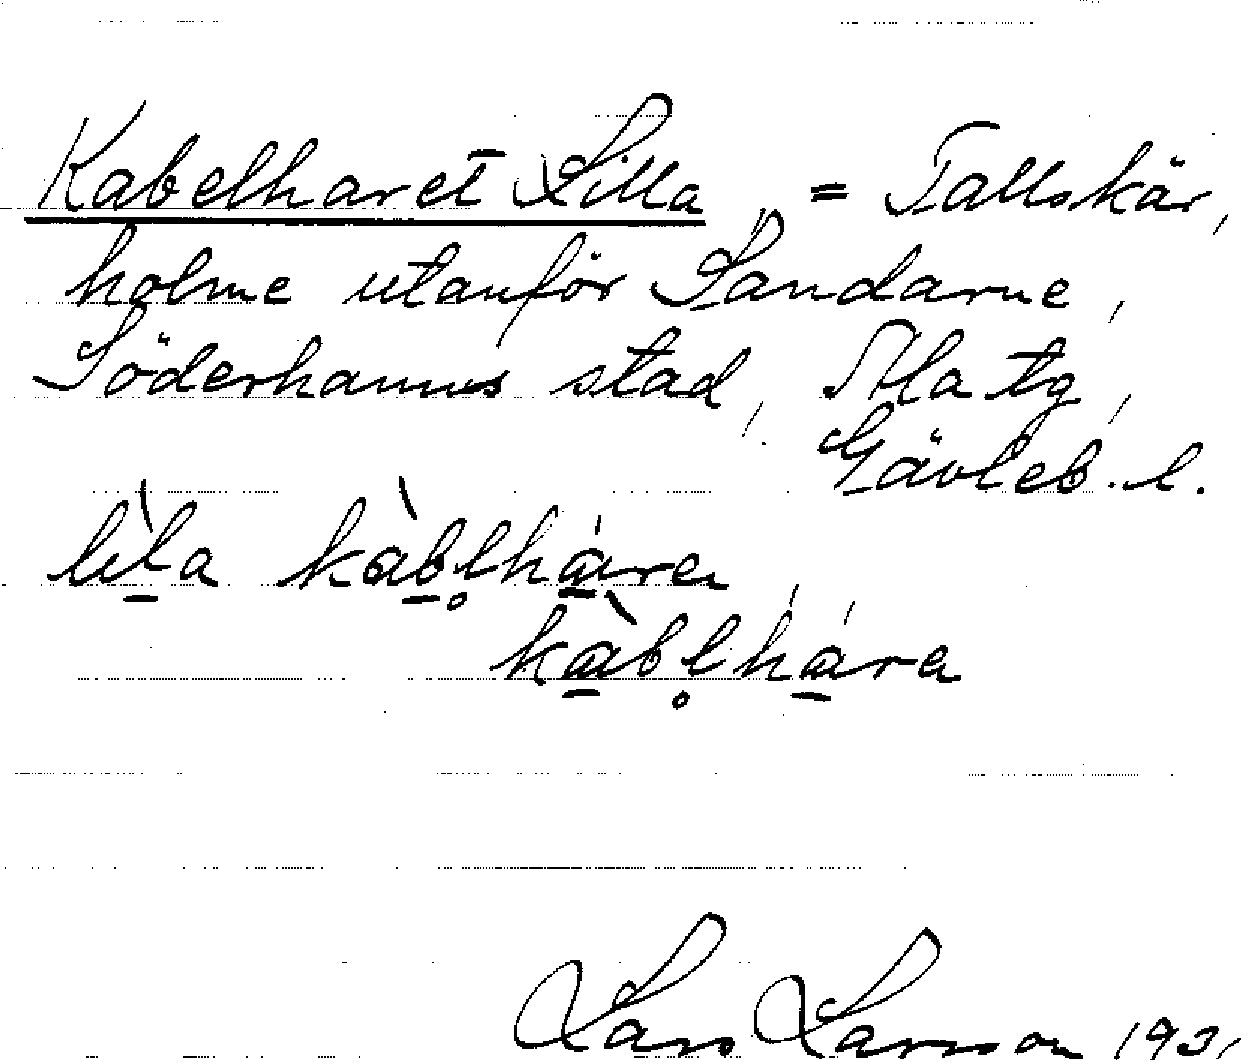 Kabelharet Lilla, = Tallskär,
holme utanför Sandarne,
Söderhamns stad, Ala tg,
Gävleb. l.
lìla kàbl̥hára,
kàbl̥hára
Lars Larsson 193